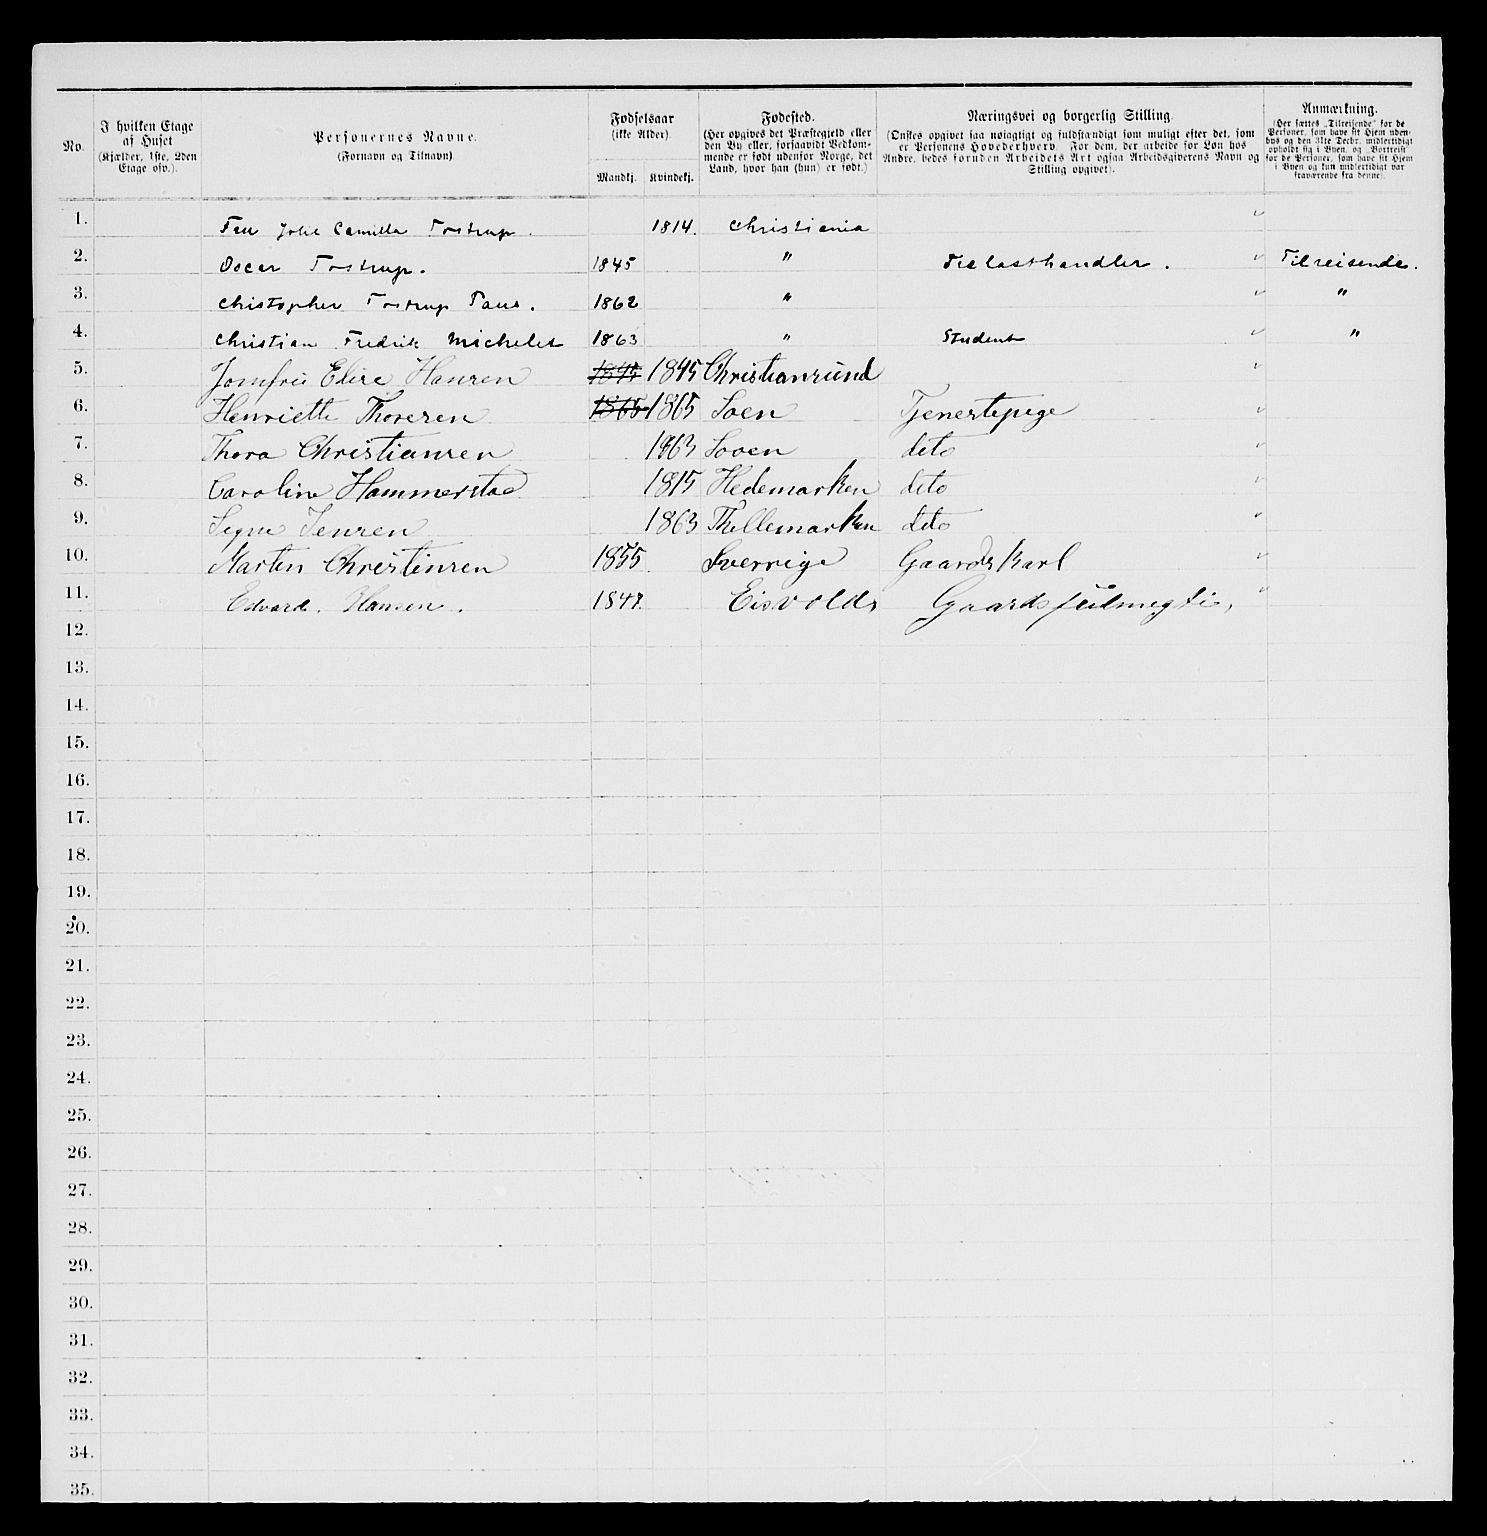 No.
I hvilken Etage af Huset (Kjælder, 1ste, 2den Etage osv.).
Personernes Navne. (Fornavn og Tilnavn)
Fødselsaar (ikke Alder).
Mandkj. Kvindekj.
Fødested. (Her opgives det Præstegjeld eller den By eller, forsaavidt Vedkommende er født udenfor Norge, det Land, hvor han (hun) er født.)
Næringsvei og borgerlig Stilling. (Ønskes opgivet saa nøiagtigt og fuldstændigt som muligt efter det, som er Personens Hovederhverv. For dem, der arbeide for Løn hos Andre, bedes foruden Arbeidets Art ogsaa Arbeidsgiverens Navn og Stilling opgivet).
Anmærkning. (Her sættes „Tilreisende“ for de Personer, som have sit Hjem udenbys og den 31te Decbr. midlertidigt opholdt sig i Byen, og „Bortreist“ for de Personer, som have sit Hjem i Byen og kun midlertidigt var fraværende fra denne)
1. Camilla Tostrup. 1814. Christiania
2. Oscar Tostrup. 1845 " Trælasthandler. Tilreisende.
3. Christopher Tostrup 1862 " "
4. Christian Fredrik Michelet 1863 " Student "
5. Jomfru Elise Hansen 1845 1845 Christiansund
6. Henriette Thoresen 1865 1865 Tjenestepige
7. Thora Christiansen 1863 deto
8. Caroline Hammerstad 1815 Hedemarken deto
9. Jensen 1863 Thellemarken deto
10. Martin Christensen 1855 Sverrige Gaardskarl
11. Edvard. Hansen. 1847. Eisvolds
12.
13.
14.
15.
16.
17.
18.
19.
20.
21.
22.
23.
24.
25.
26.
27.
28.
29.
30.
31.
32.
33.
34.
35.